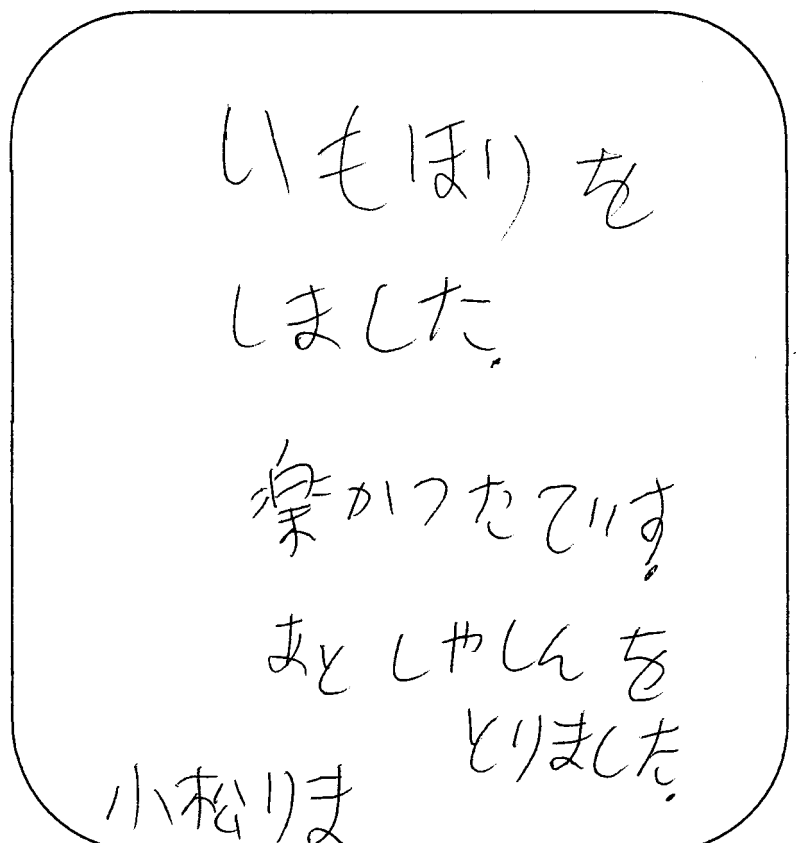 いもほりを
しました.
楽かつたです.
あとしやしんを
とりました.
小松りま